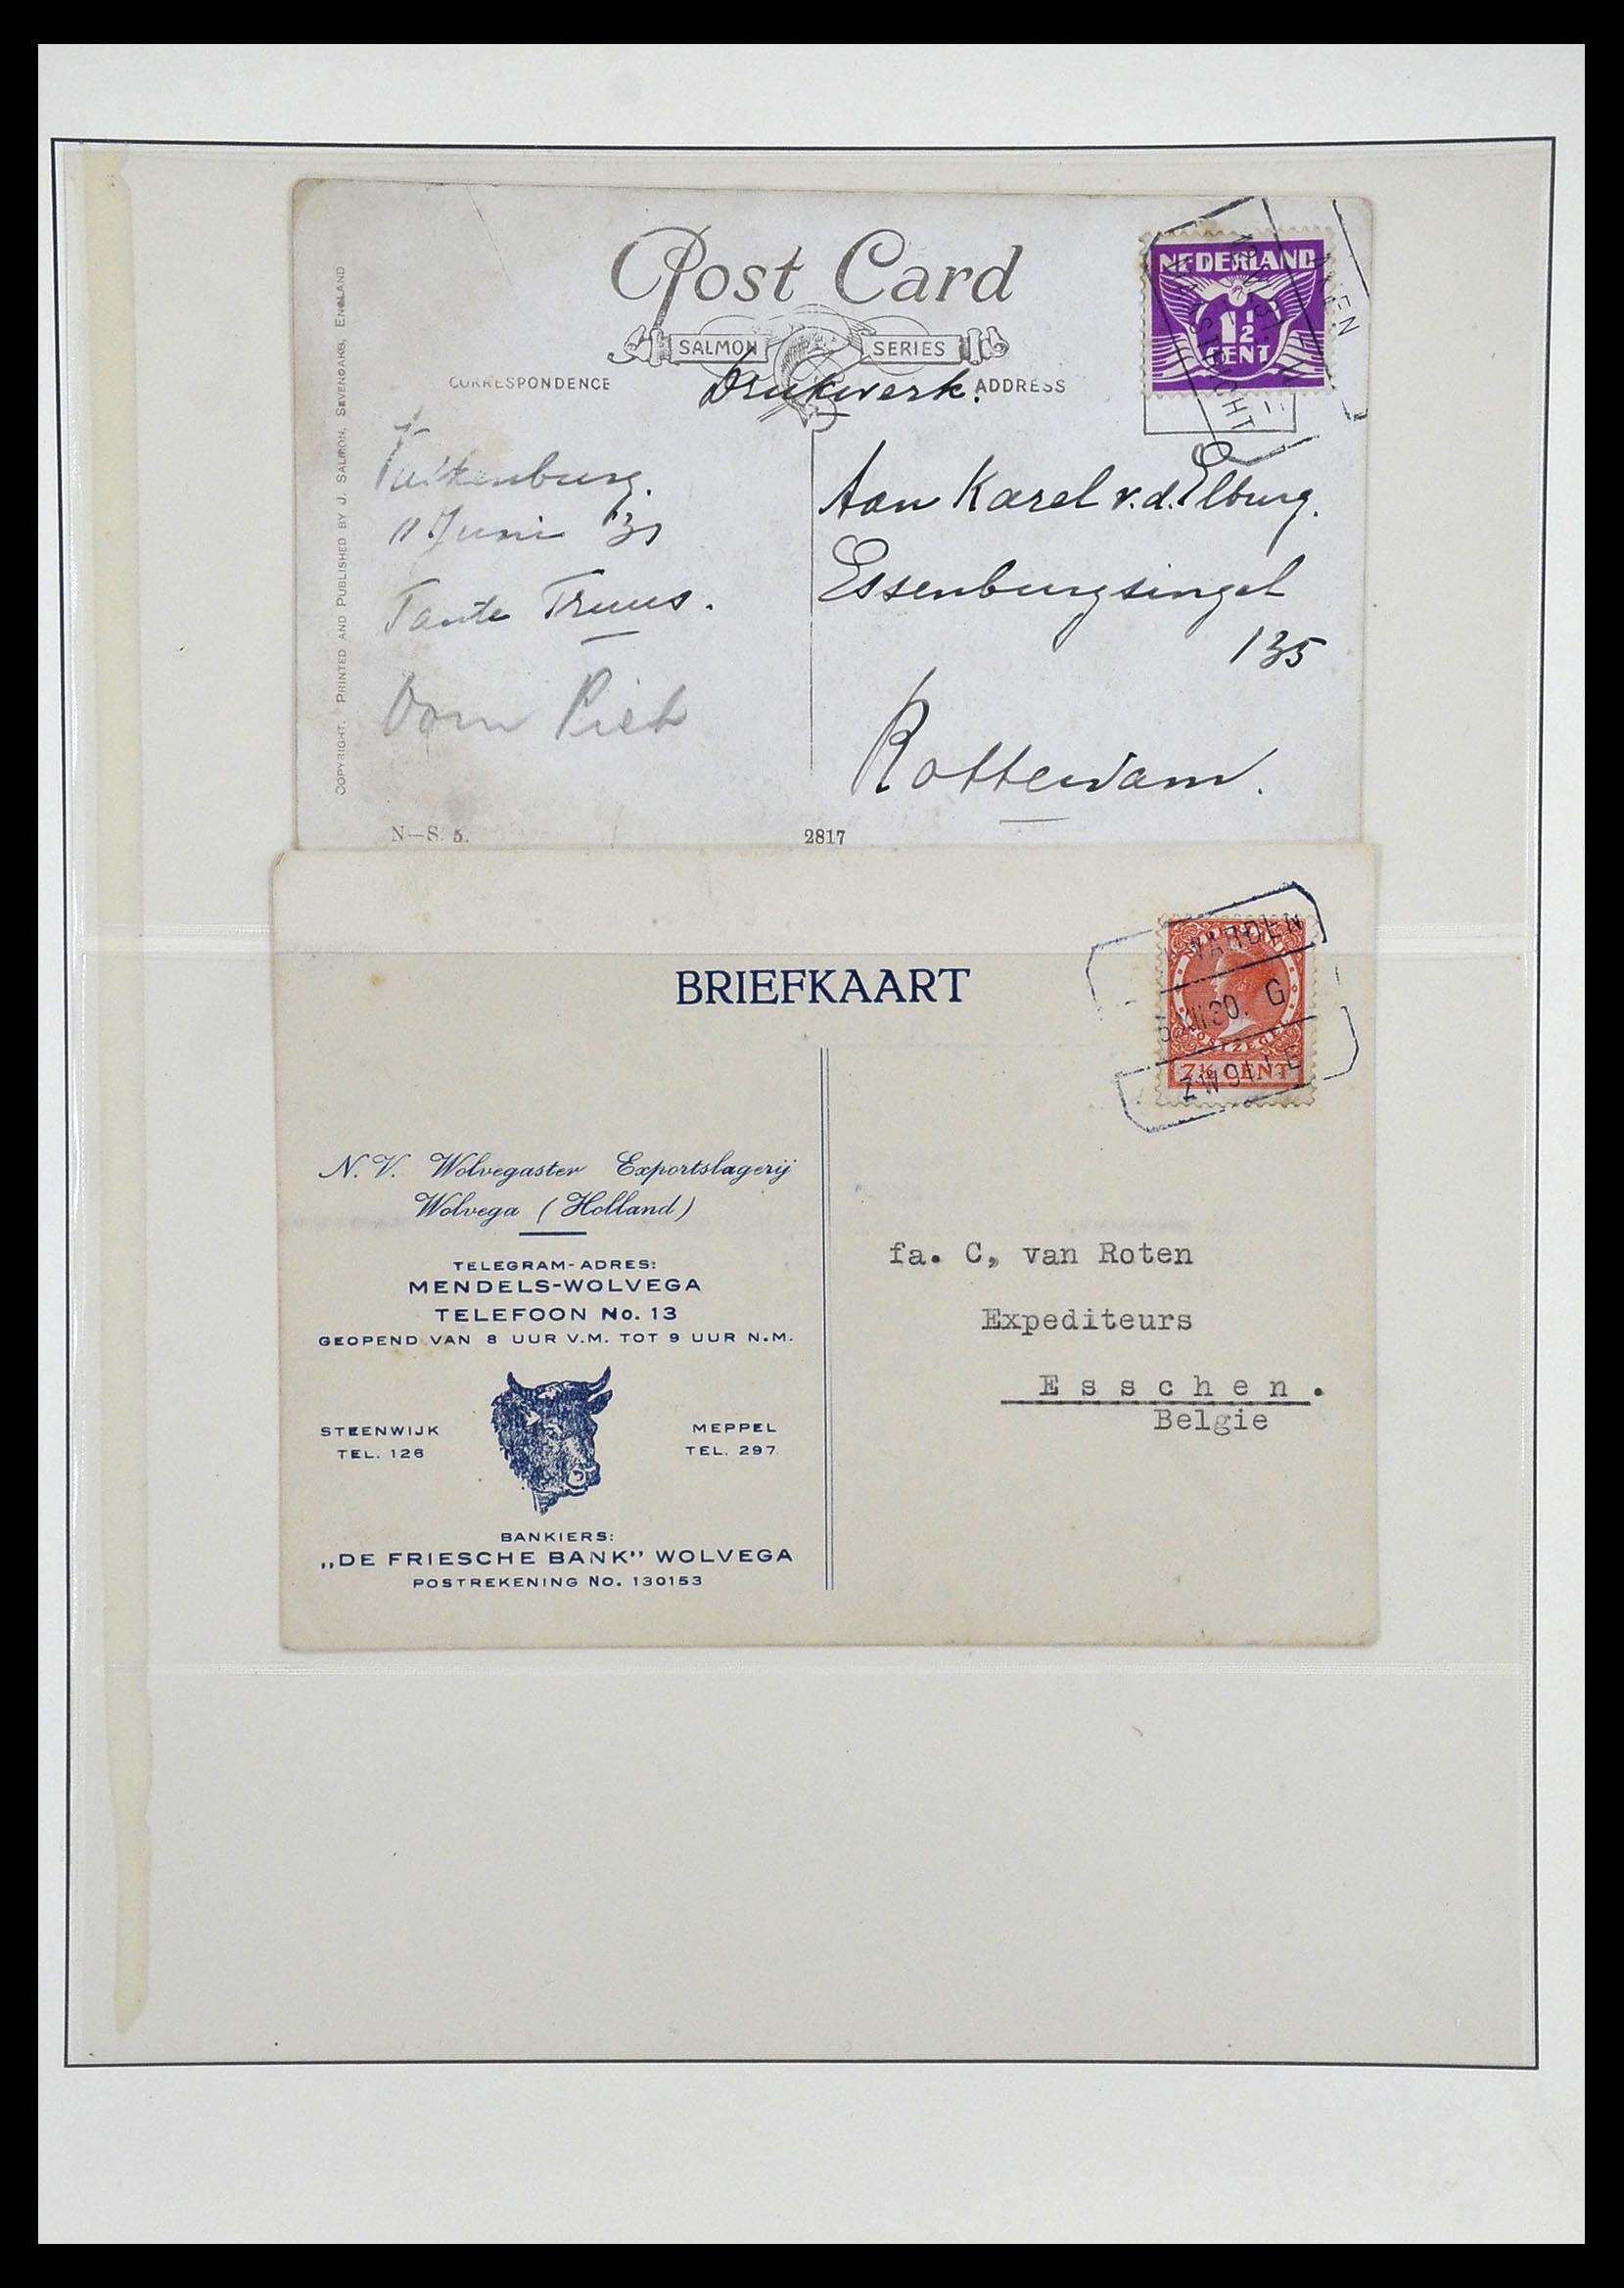 Post Card
SALMON SERIES
CORRESPONDENCE
Drukwerk.
ADDRESS
NEDERLAND
1½
CENT
COPYRIGHT. PRINTED AND PUBLISHED BY J. SALMON, SEVENOAKS, ENGLAND
11 Juni '31
Tante Truus.
Oom Piet
Aan Karel v.d. Elburg.
Essenburgsingel
135
Rotterdam.
N—S. 5.
2817
BRIEFKAART
WARDEN
G
ZWOLLE
POSTZEGEL
7½ CENT
N. V. Wolvegaster Exportslagerij
Wolvega (Holland)
TELEGRAM-ADRES:
MENDELS-WOLVEGA
TELEFOON No. 13
GEOPEND VAN 8 UUR V.M. TOT 9 UUR N.M.
STEENWIJK
TEL. 126
MEPPEL
TEL. 297
BANKIERS:
,,DE FRIESCHE BANK'' WOLVEGA
POSTREKENING No. 130153
fa. C, van Roten
Expediteurs
Esschen.
Belgie